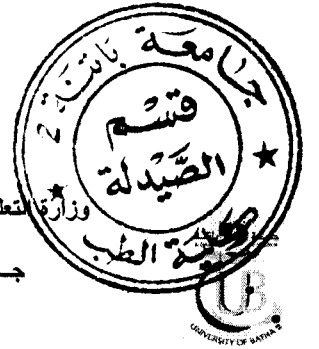 جامعة باتنة 2
قسم
الصيدلة
كلية الطب
وزارة التعل
جـ
UNIVERSITY OF BATNA 2